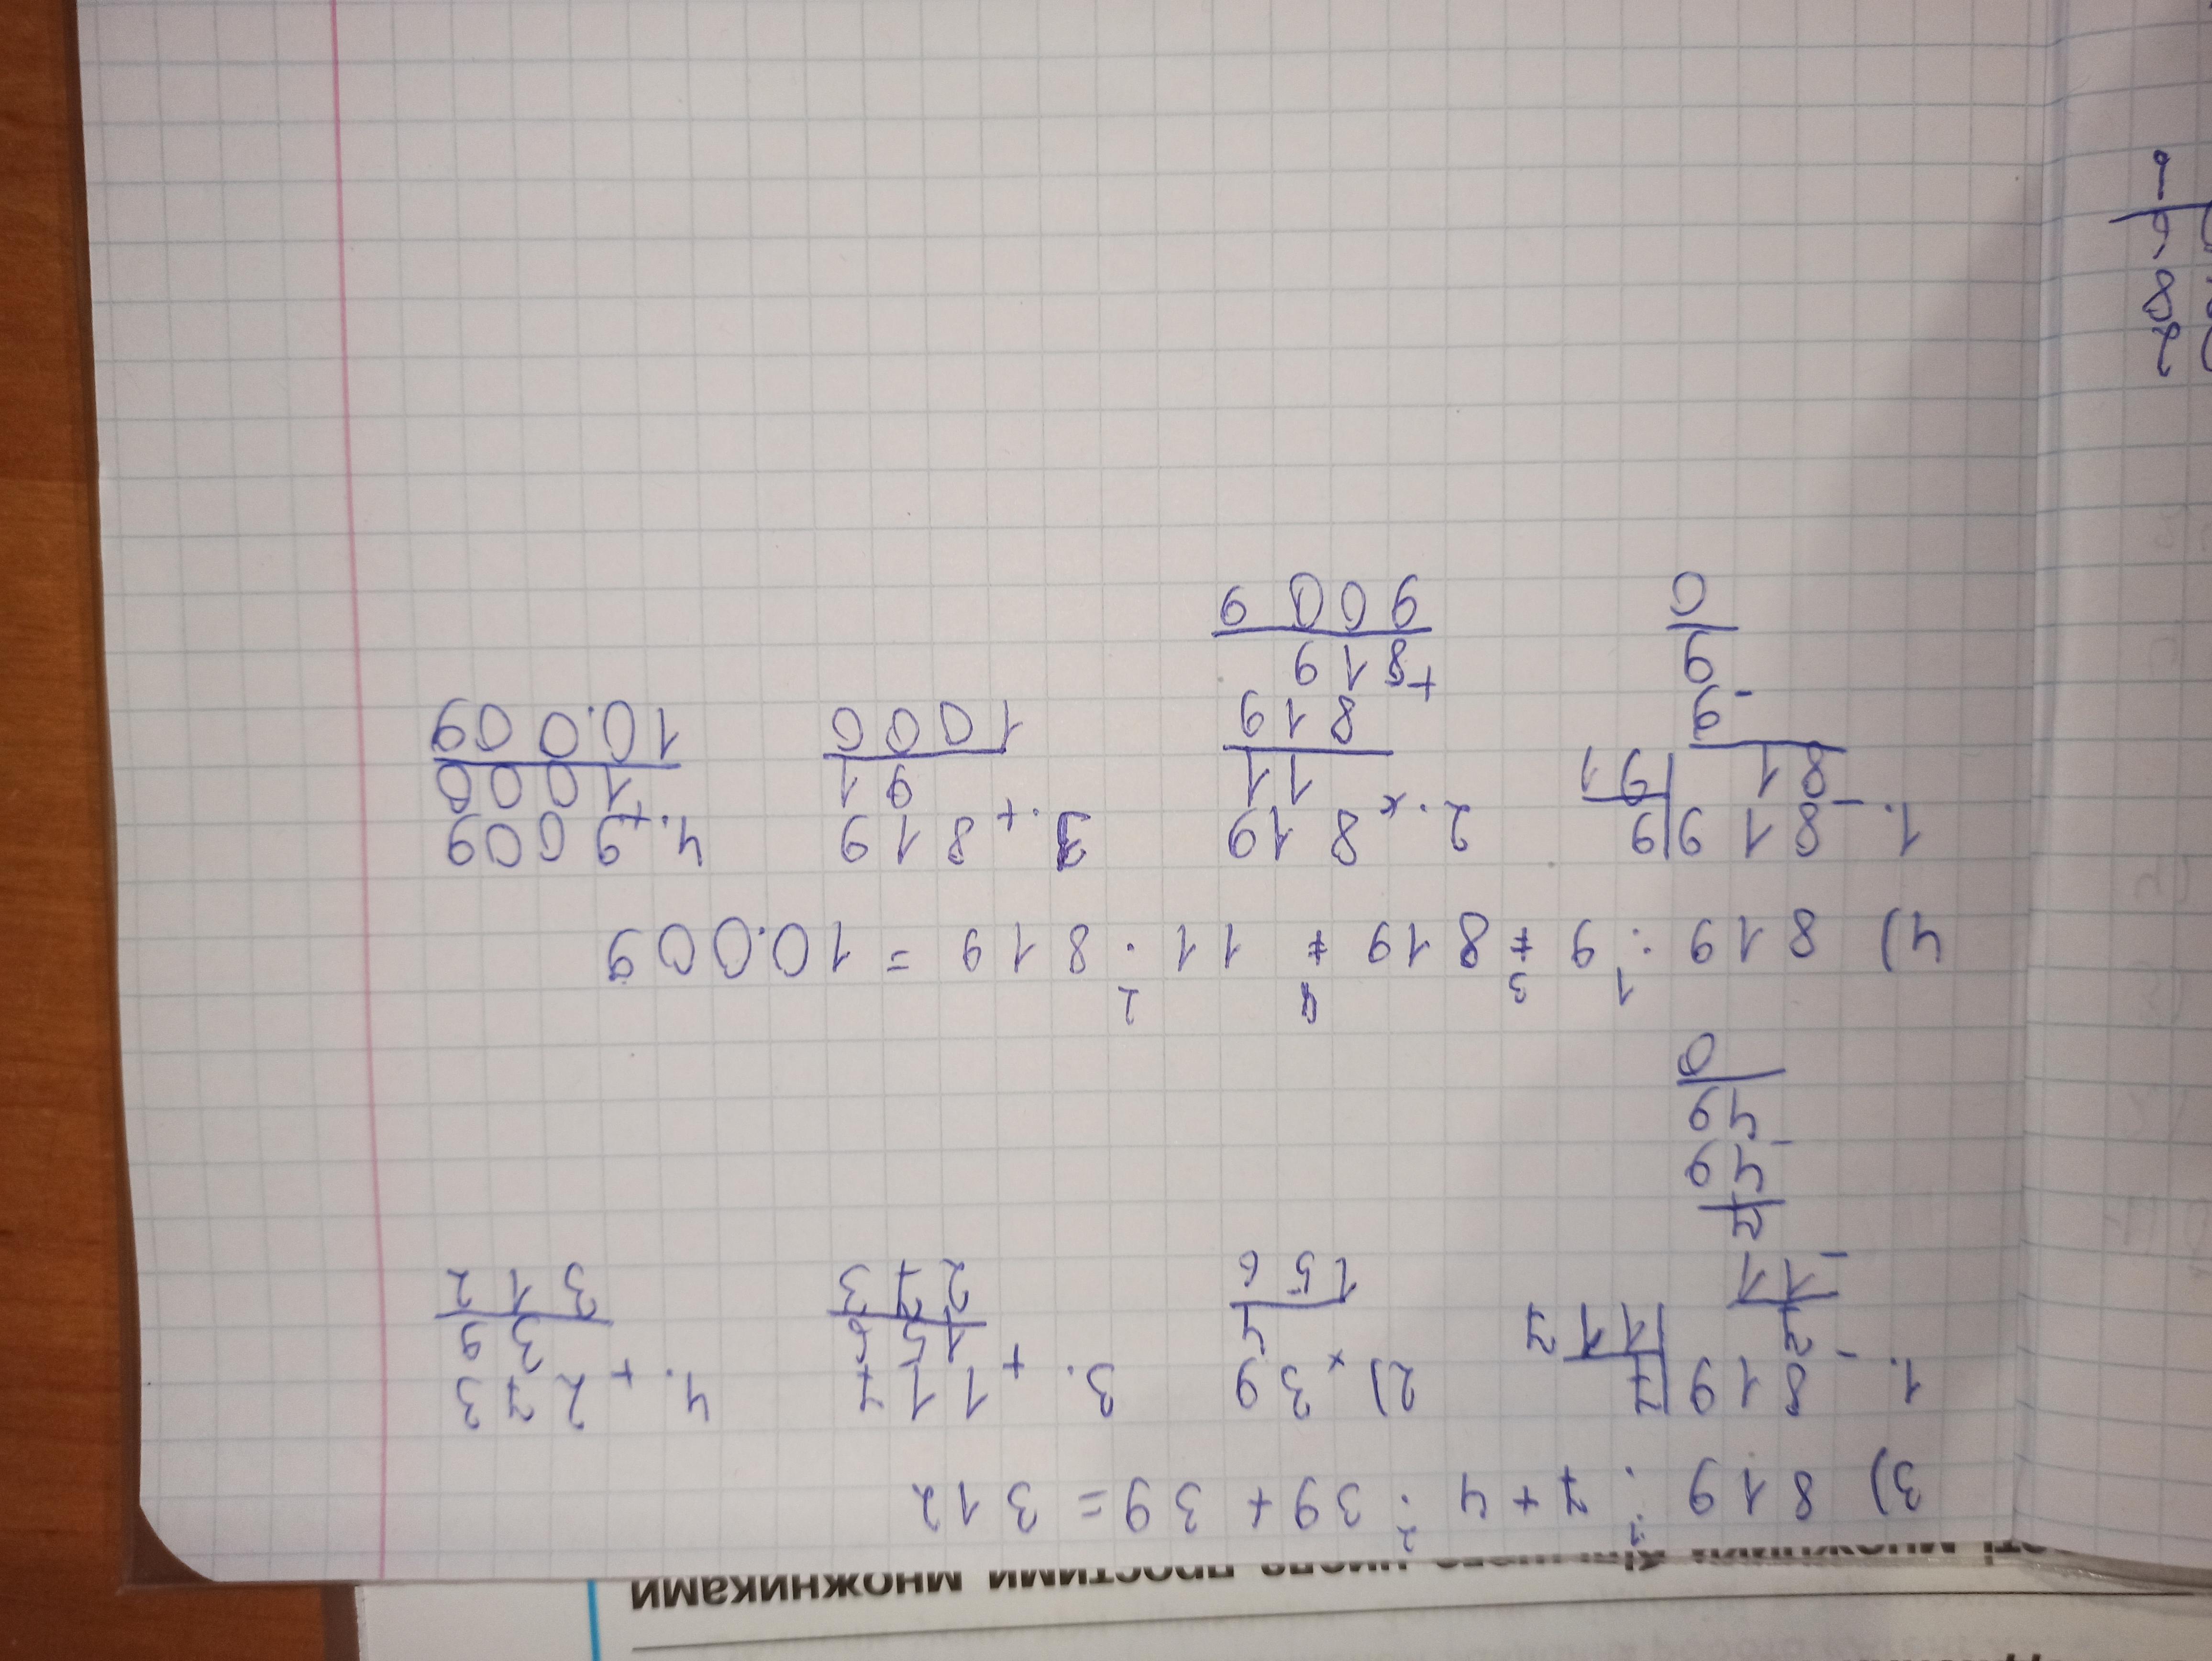 множники більшого числа простими множниками
1 2
3) 819 : 7 + 4 · 39 + 39 = 312
1. - 819 | 7 2) × 39 3. + 117 4. + 273
7 | 117 4 156 39
- 11 156 273 312
7
- 49
49
0
1 3 4 2
4) 819 : 9 + 819 + 11 · 819 = 10.009
1. - 819 | 9 2. × 819 3. + 819 4. + 9009
81 | 91 11 91 1000
- 9 819 1000 10.009
9 + 819
0 9009